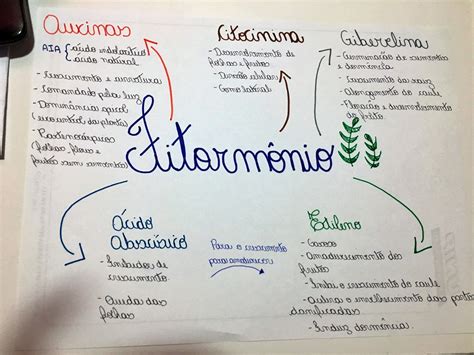 Auxinas
AIA { ácido indolacético
ácido natural
- crescimento e curvatura
- comandado pela luz
- Dominância apical
- Partenocárpicos
(folhas, flores e
frutos
Citocinina
- Desenvolvimento de
folhas e frutos
- Divisão celular
- Gema lateral
Giberelina
- Germinação de sementes
e dormência
- Crescimento da raiz
- Alongamento do caule
- Floração e desenvolvimento
do fruto
Fitormônio
Ácido
Abscísico
- Inibidor de
crescimento
- Queda das
folhas
Para o crescimento
para amadurecer
Etileno
- Gasoso
- Amadurecimento dos
frutos
- Inibi o crescimento do caule
- Acelera o envelhecimento das partes
danificadas
- Induz dormência.